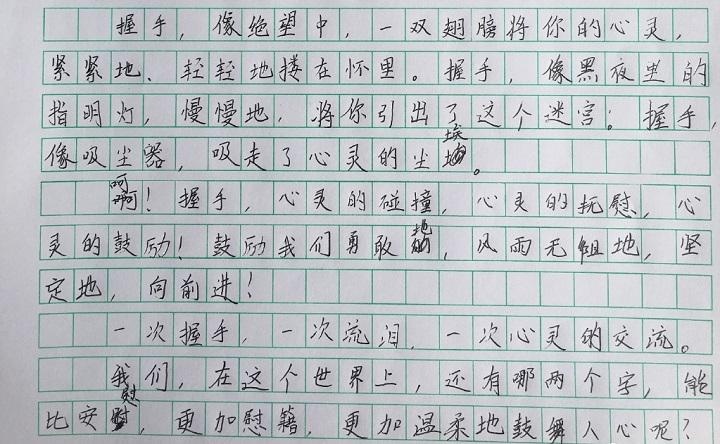 握手，像绝望中，一双翅膀将你的心灵，
紧紧地、轻轻地搂在怀里。握手，像黑夜里的
指明灯，慢慢地，将你引出了这个迷宫；握手，
像吸尘器，吸走了心灵的尘埃。
啊！握手，心灵的碰撞，心灵的抚慰，心
灵的鼓励！鼓励我们勇敢地，风雨无阻地，坚
定地，向前进！
一次握手，一次流泪，一次心灵的交流。
我们，在这个世界上，还有哪两个字，能
比安慰，更加慰籍，更加温柔地鼓舞人心呢？